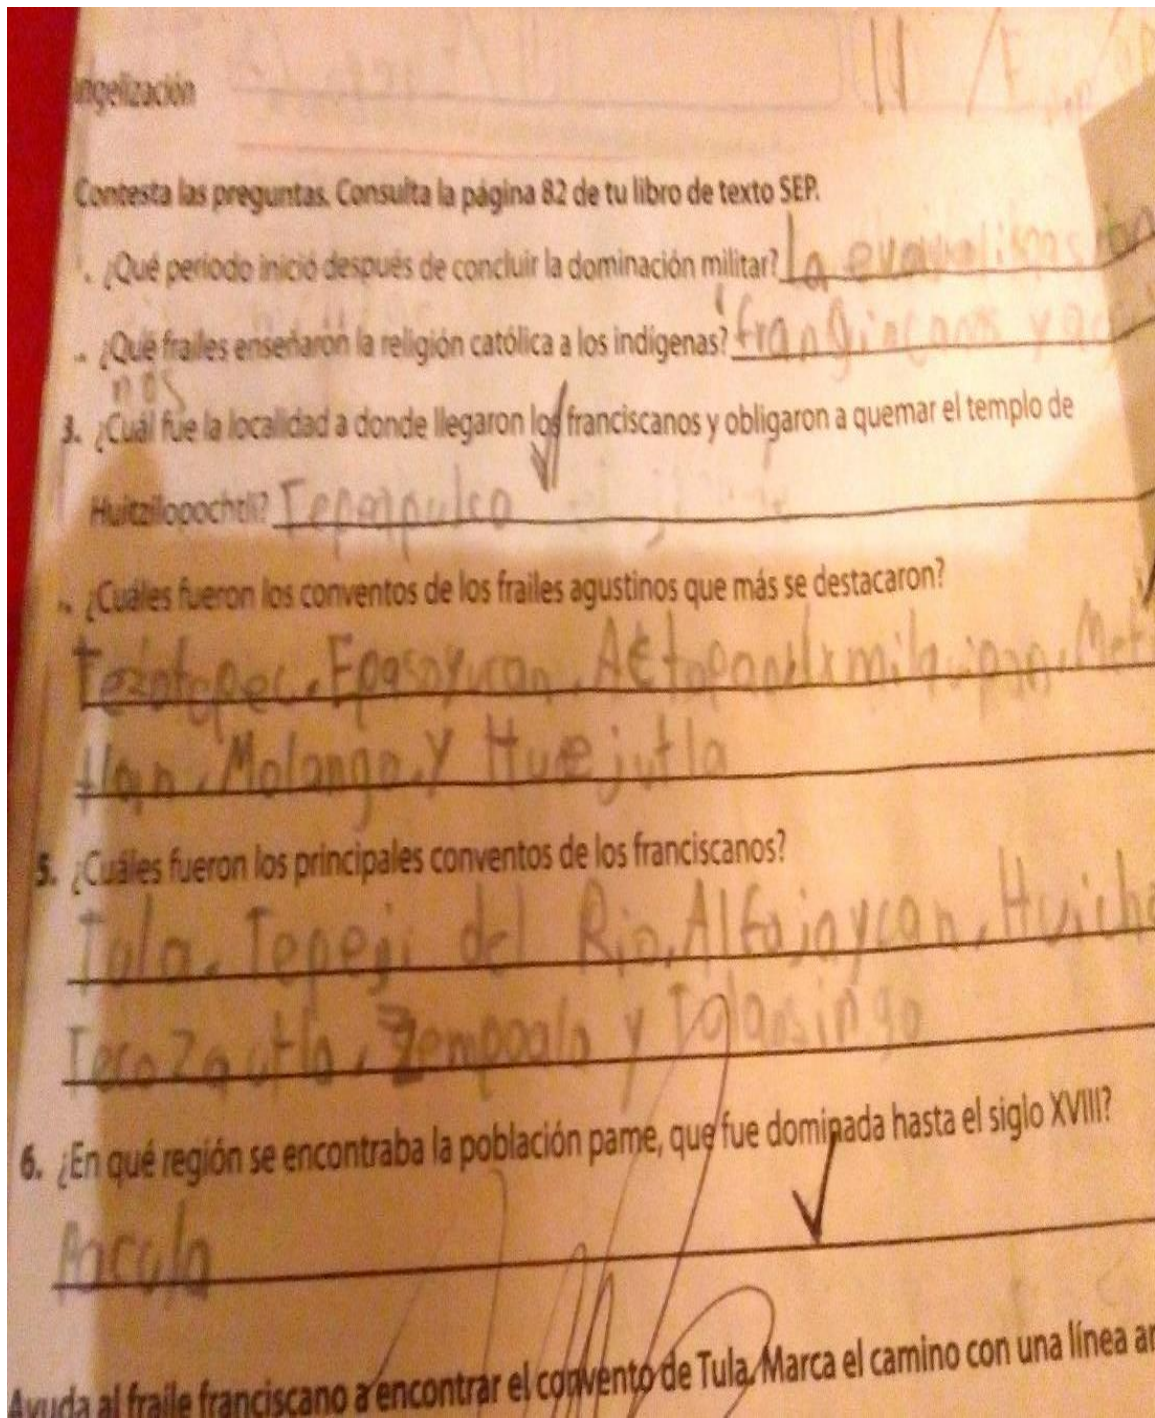 ngelización
Contesta las preguntas. Consulta la página 82 de tu libro de texto SEP.
¿Qué período inició después de concluir la dominación militar? La
¿Qué frailes enseñaron la religión católica a los indígenas?
nos
3. ¿Cuál fue la localidad a donde llegaron los franciscanos y obligaron a quemar el templo de
Huitzilopochtli? Tepeapulco
¿Cuáles fueron los conventos de los frailes agustinos que más se destacaron?
Tezotepec, Epasoyucan, Actopan, Ixmihuipan, Met
tlan, Molango, y Huejutla
5. ¿Cuáles fueron los principales conventos de los franciscanos?
Tula, Tepegi del Rio, Alfajaycan, Huicha
Tecozautla, Zempoala y Tolansingo
6. ¿En qué región se encontraba la población pame, que fue dominada hasta el siglo XVIII?
Pacula
Ayuda al fraile franciscano a encontrar el convento de Tula. Marca el camino con una línea